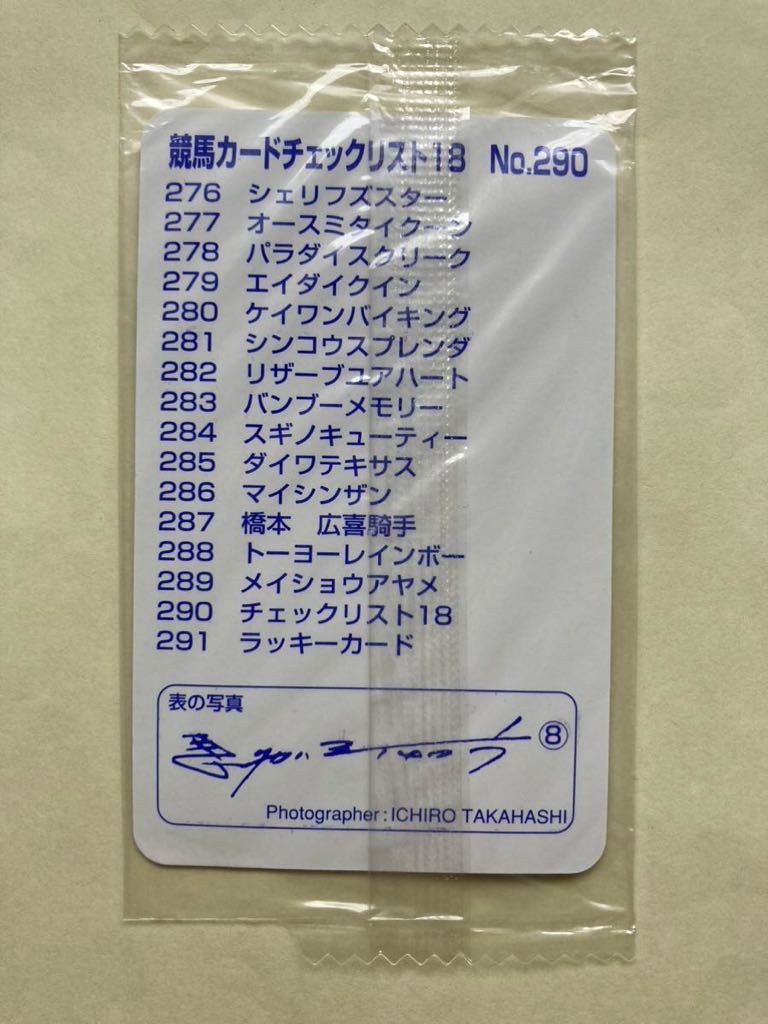 競馬カードチェックリスト18 No.290
276 シェリフズスター
277 オースミタイクーン
278 パラダイスクリーク
279 エイダイクイン
280 ケイワンバイキング
281 シンコウスプレンダ
282 リザーブユアハート
283 バンブーメモリー
284 スギノキューティー
285 ダイワテキサス
286 マイシンザン
287 橋本 広喜騎手
288 トーヨーレインボー
289 メイショウアヤメ
290 チェックリスト18
291 ラッキーカード
表の写真
⑧
Photographer:ICHIRO TAKAHASHI